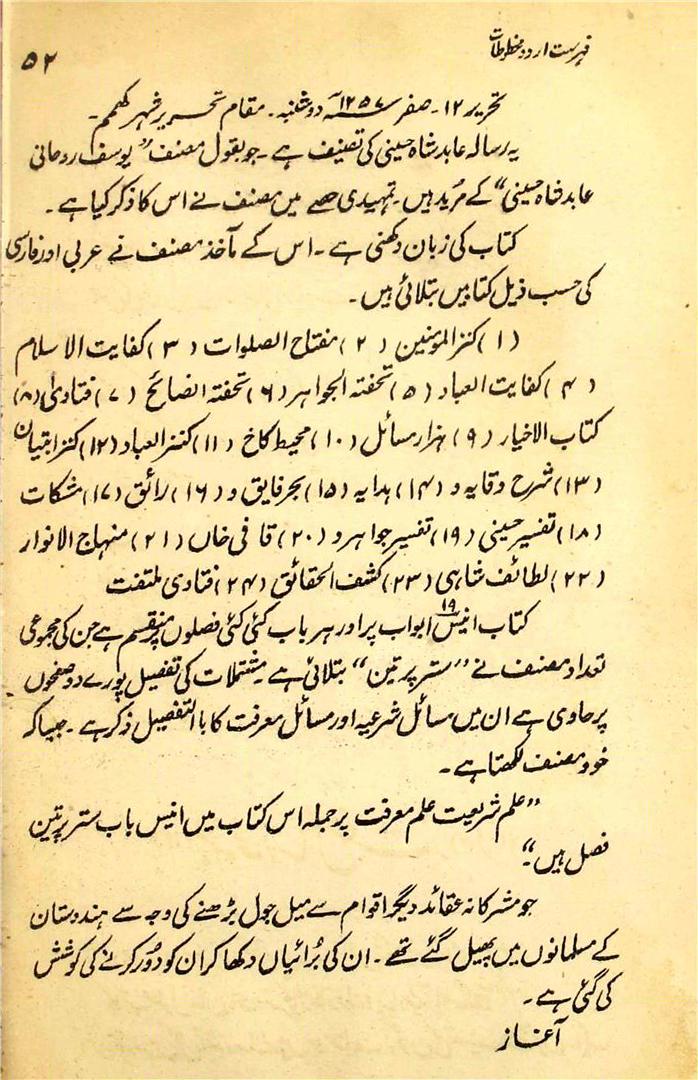 فہرست اردو مخطوطات
۵۲
تحریر ۱۲۔ صفر ۱۲۵۷ھ دوشنبہ۔ مقام تحریر شہر کھمم۔
یہ رسالہ عابد شاہ حسینی کی تصنیف ہے۔ جو بقول مصنف "یوسف روحانی
عابد شاہ حسینی" کے مرید ہیں۔ تمہیدی حصے میں مصنف نے اس کا ذکر کیا ہے۔
کتاب کی زبان دکھنی ہے۔ اس کے مآخذ مصنف نے عربی اور فارسی
کی حسب ذیل کتابیں بتلائی ہیں۔
(۱) کنز المومنین (۲) مفتاح الصلوات (۳) کفایت الاسلام
(۴) کفایت العباد (۵) تحفتہ الجواہر (۶) تحفتہ الضائح (۷) فتاویٰ (۸)
کتاب الاخیار (۹) ہزار مسائل (۱۰) محیط کاخ (۱۱) کنز العباد (۱۲) کنز ابتیان
(۱۳) شرح وقایہ و (۱۴) ہدایہ (۱۵) بحر فایق و (۱۶) رائق (۱۷) مشکات
(۱۸) تفسیر حسینی (۱۹) تفسیر جواہر و (۲۰) قافی خاں (۲۱) منہاج الانوار
(۲۲) لطائف شاہی (۲۳) کشف الحقائق (۲۴) فتاویٰ ملتفت
کتاب انیس ۱۹ ابواب پر اور ہر باب کئی کئی فصلوں پر منقسم ہے جن کی مجموعی
تعداد مصنف نے "ستر پرتین" بتلائی ہے مشتملات کی تفصیل پورے دو صفحوں
پر حاوی ہے ان میں مسائل شرعیہ اور مسائل معرفت کا باالتفصیل ذکر ہے۔ جیسا کہ
خود مصنف لکھتا ہے۔
"علم شریعت علم معرفت پر جملہ اس کتاب میں انیس باب ستر پرتین
فصل ہیں"۔
جو مشرکانہ عقائد دیگر اقوام سے میل جول بڑھنے کی وجہ سے ہندوستان
کے مسلمانوں میں پھیل گئے تھے۔ ان کی برائیاں دکھا کر ان کو دور کرنے کی کوشش
کی گئی ہے۔
آغاز